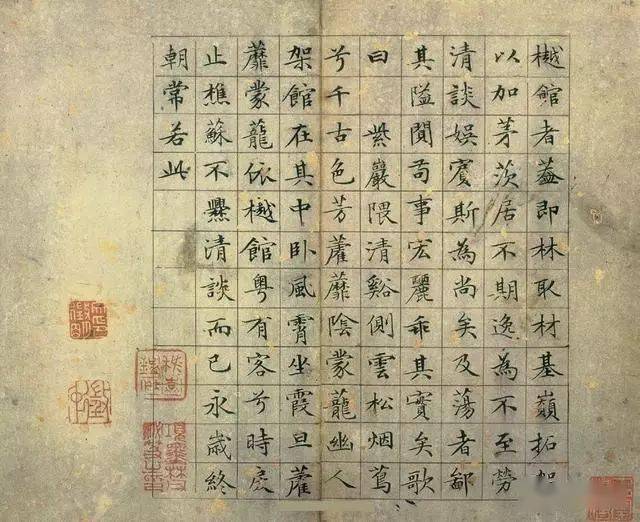 樾館者蓋即林取材基嶺拓架
以加茅茨居不期逸為不至勞
清談娛賓斯為尚矣及蕩者鄙
其隘闃苟事宏麗乖其實矣歌
曰 紫巖隈清谿側雲松烟蔦
兮千古色芳藿蘼陰蒙龍幽人
架館在其中卧風霄坐霞旦藿
蘼蒙龍依樾館粵有客兮時戾
止樵蘇不爨清談而已永歲終
朝常若此